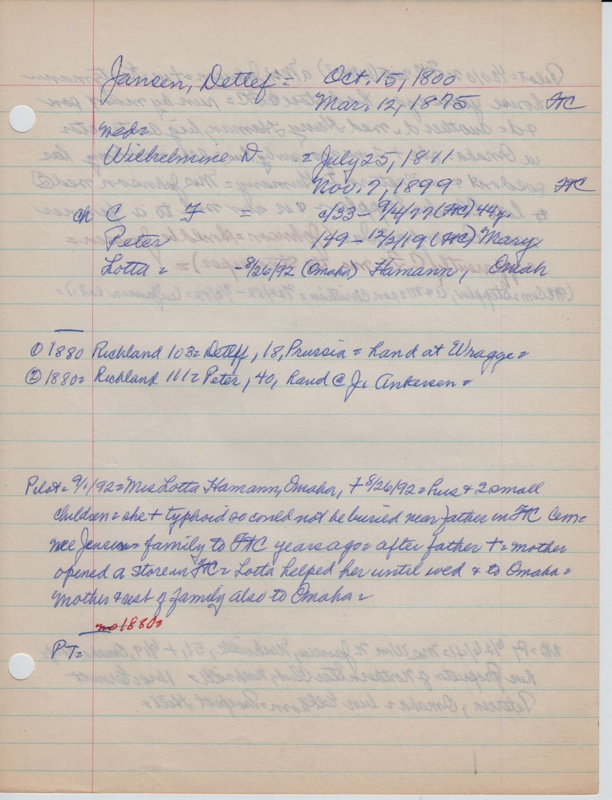 Jansen, Detlef = Oct. 15, 1800
Mar. 12, 1875 FtC
med=
Wilhelmine D = July 25, 1811
Nov. 7, 1899 FtC
ch C F = c/33 - 9/4/77 (FtC) 44y.
Peter 149 - 12/2/19 (FtC) Mary
Lotta = - 8/26/92 (Omaha) Hamann, Omah
① 1880 Richland 103 = Detlef, 18, Prussia = hand at Wragge =
② 1880= Richland 111 = Peter, 40, hand @ Ju Ankersen =
Pilot = 9/1/92 = Mrs Lotta Hamann, Omaha, + 8/26/92 = hus + 2 small
children = she + typhoid so could not be buried near father in FtC Cem =
nee Jensen = family to FtC years ago = after father + = mother
opened a store in FtC = Lotta helped her until wed & to Omaha =
Mother & rest of family also to Omaha =
no 1880=
PT=